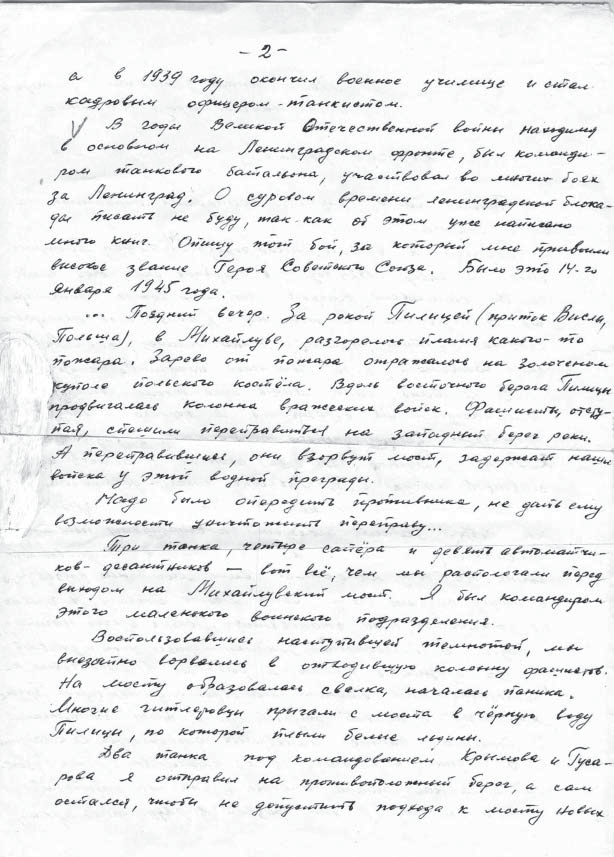 -2-
а в 1939 году окончил военное училище и стал
кадровым офицером-танкистом.
В годы Великой Отечественной войны находился
в основном на Ленинградском фронте, был команди-
ром танкового батальона, участвовал во многих боях
за Ленинград. О суровом времени ленинградской блока-
ды писать не буду, так как об этом уже написано
много книг. Опишу тот бой, за который мне присвоили
высокое звание Героя Советского Союза. Было это 14-го
января 1945 года.
... Поздний вечер. За рекой Пилицей (приток Вислы,
Польша), в Михайлуве, разгоралось пламя какого-то
пожара. Зарево от пожара отражалось на золоченом
куполе польского костёла. Вдоль восточного берега Пилицы
продвигалась колонна вражеских войск. Фашисты, отсту-
пая, спешили переправиться на западный берег реки.
А переправившись, они взорвут мост, задержат наши
войска у этой водной преграды.
Надо было опередить противника, не дать ему
возможности уничтожить переправу...
Три танка, четыре сапёра и девять автоматчи-
ков-десантников — вот всё, чем мы располагали перед
выходом на Михайлувский мост. Я был командиром
этого маленького воинского подразделения.
Воспользовавшись наступившей темнотой, мы
внезапно ворвались в отходившую колонну фашистов.
На мосту образовалась свалка, началась паника.
Многие гитлеровцы прыгали с моста в чёрную воду
Пилицы, по которой плыли белые льдины.
Два танка под командованием Крымова и Гуса-
рова я отправил на противоположный берег, а сам
остался, чтобы не допустить подхода к мосту новых